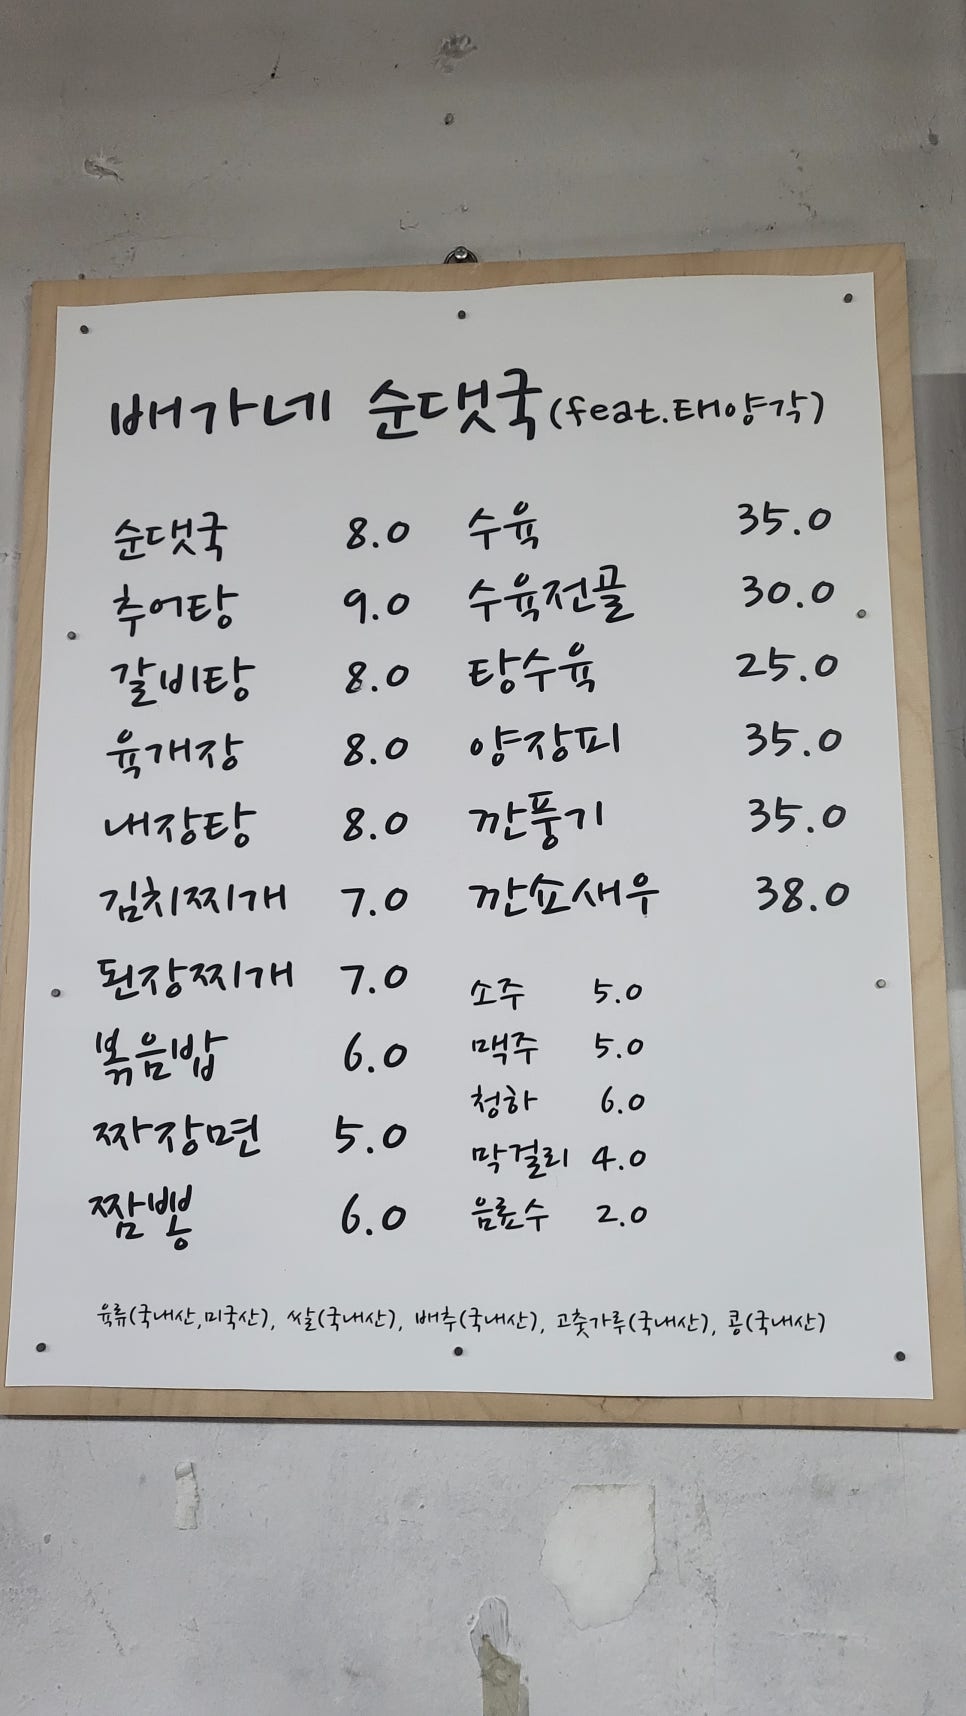 배가네 순댓국(feat.태양각)
순댓국 8.0
추어탕 9.0
갈비탕 8.0
육개장 8.0
내장탕 8.0
김치찌개 7.0
된장찌개 7.0
볶음밥 6.0
짜장면 5.0
짬뽕 6.0
수육 35.0
수육전골 30.0
탕수육 25.0
양장피 35.0
깐풍기 35.0
깐쇼새우 38.0
소주 5.0
맥주 5.0
청하 6.0
막걸리 4.0
음료수 2.0
육류(국내산,미국산), 쌀(국내산), 배추(국내산), 고춧가루(국내산), 콩(국내산)